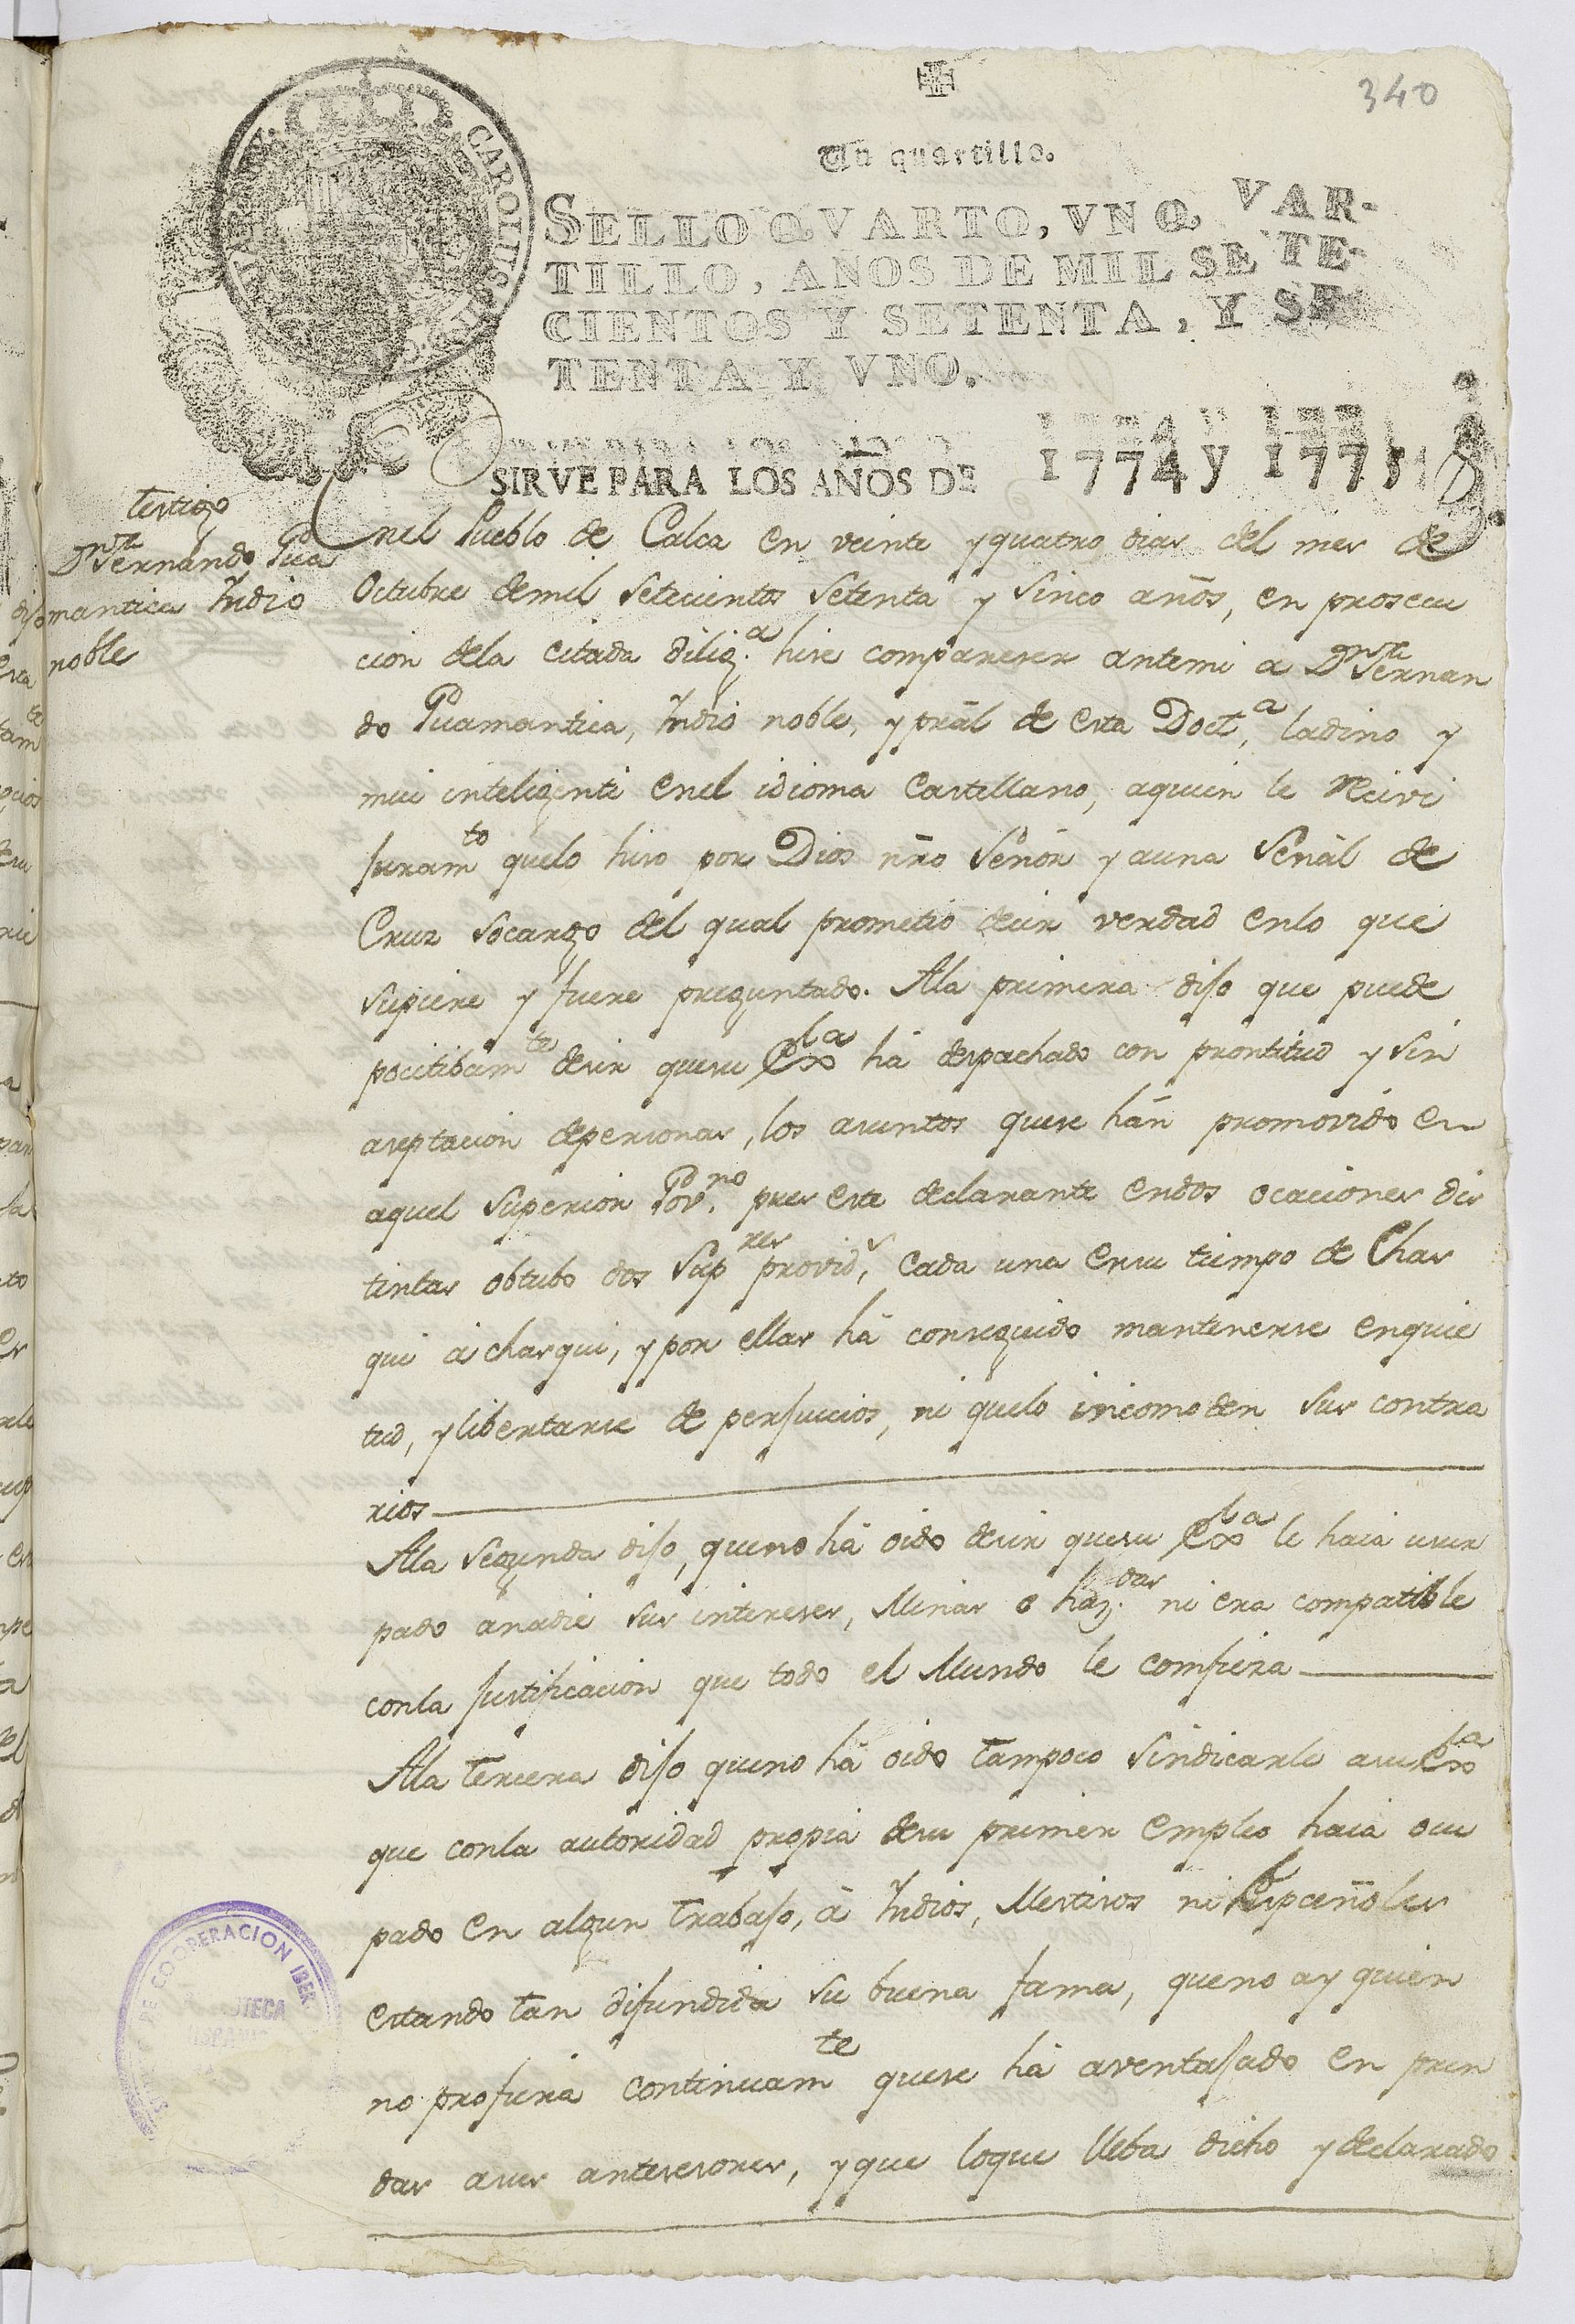 340
Un quartillo.
SELLO QVARTO, VN QVAR-
TILLO, AÑOS DE MIL SETE-
CIENTOS Y SETENTA, Y SE-
TENTA Y VNO.
SIRVE PARA LOS AÑOS DE 1774 y 1775
CAROLUS
testigo
Dn Fernando Gua
mantica Yndio
noble
Enel Pueblo de Calca en veinte yquatro dias del mes de
Octubre demil setecientos setenta y sinco años, en prosecu
cion dela citada dilig.a hise compareser antemi a Dn Fernan
do Guamantica, Yndio noble, y prãl de esta Doct.a, ladino y
mui inteligente enel idioma Castellano, aquien le recivi
juramto quelo hiso por Dios nr̃o Señor y auna señal de
Cruz socargo del qual prometio decir verdad enlo que
supiere y fuere preguntado. Ala primera dijo que puede
pocitibamte desir quesu Exla há despachado con prontitud y sin
aseptacion depersonas, los asuntos quese hán promovido en
aquel superior Govno. pues este declarante endos ocaciones dis
tintas obtubo dos Supres provids, cada una ensu tiempo de Chas
qui á chasqui, y por ellas há conseguido mantenerse enquie
tud, y libertarse de perjuicios, ni quelo incomoden sus contra
rios
Ala segunda dijo, queno há oido desir quesu Exla le haia usur
pado anadie sus intereses, Minas o haz.das ni era compatible
conla justificacion que todo el Mundo le confiesa
Ala tercera dijo queno há oido tampoco sindicarle asu Exla
que conla autoridad propia desu primer empleo haia ocu
pado en algun trabajo, á Yndios, Mestisos ni Españoles
estando tan difundida su buena fama, queno ay quien
no profiera continuamte quese há aventajado en pren
das asus antesesores, y que loque lleba dicho y declarado
DE COOPERACION IBER